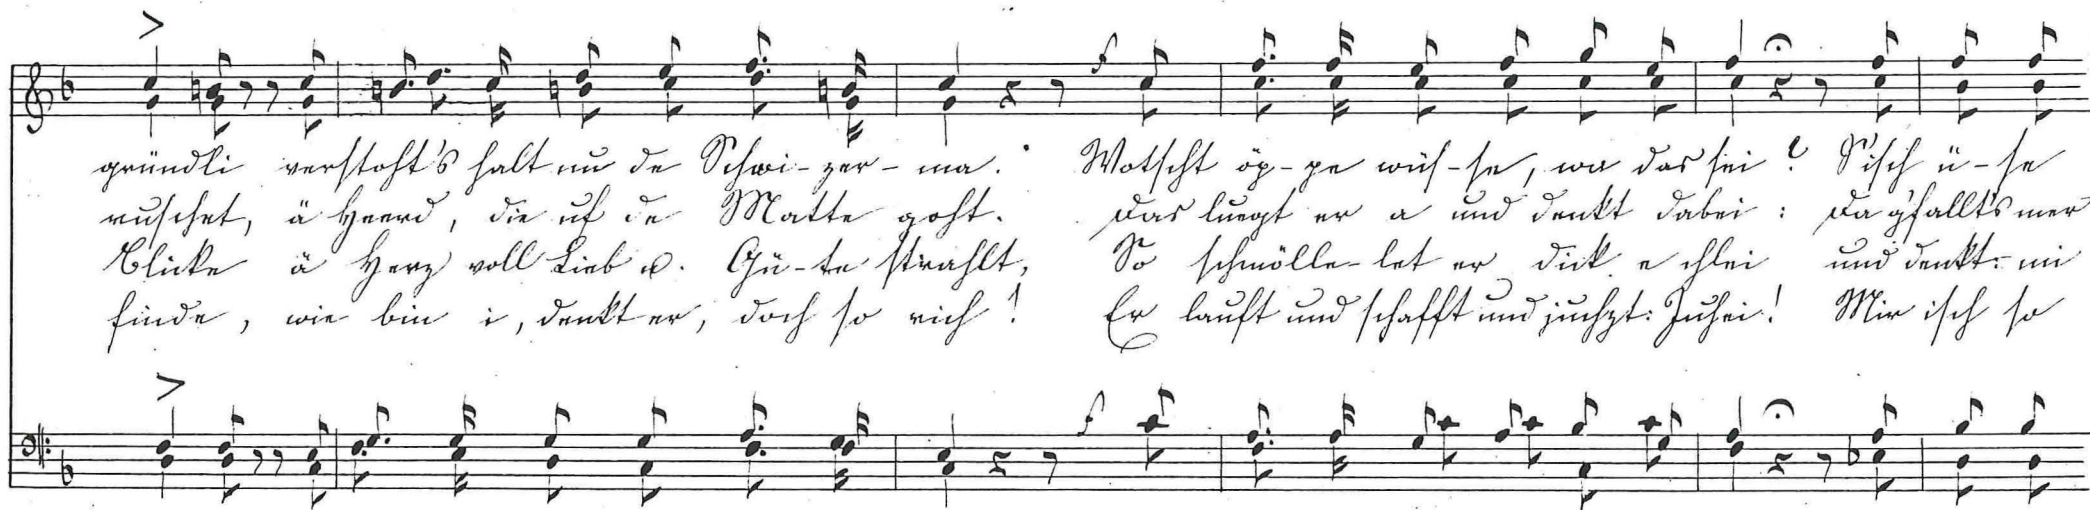 f
gründli verstoht's halt nu de Schwi-zer-ma. Wotscht öp-pe wüs-se, wa das sei? S'isch ü-se
ruschet, ä Heerd, die uf de Matte goht. Das luegt er a und denkt dabei: Da gfallt's mer
Blicke ä Herz voll Lieb u. Gü-te strahlt, So schmölle-let er dick e chlei und denkt: mi
finde, wie bin i, denkt er, doch so rich! Er lauft und schafft und juchzt: Juhei! Mir isch so
f